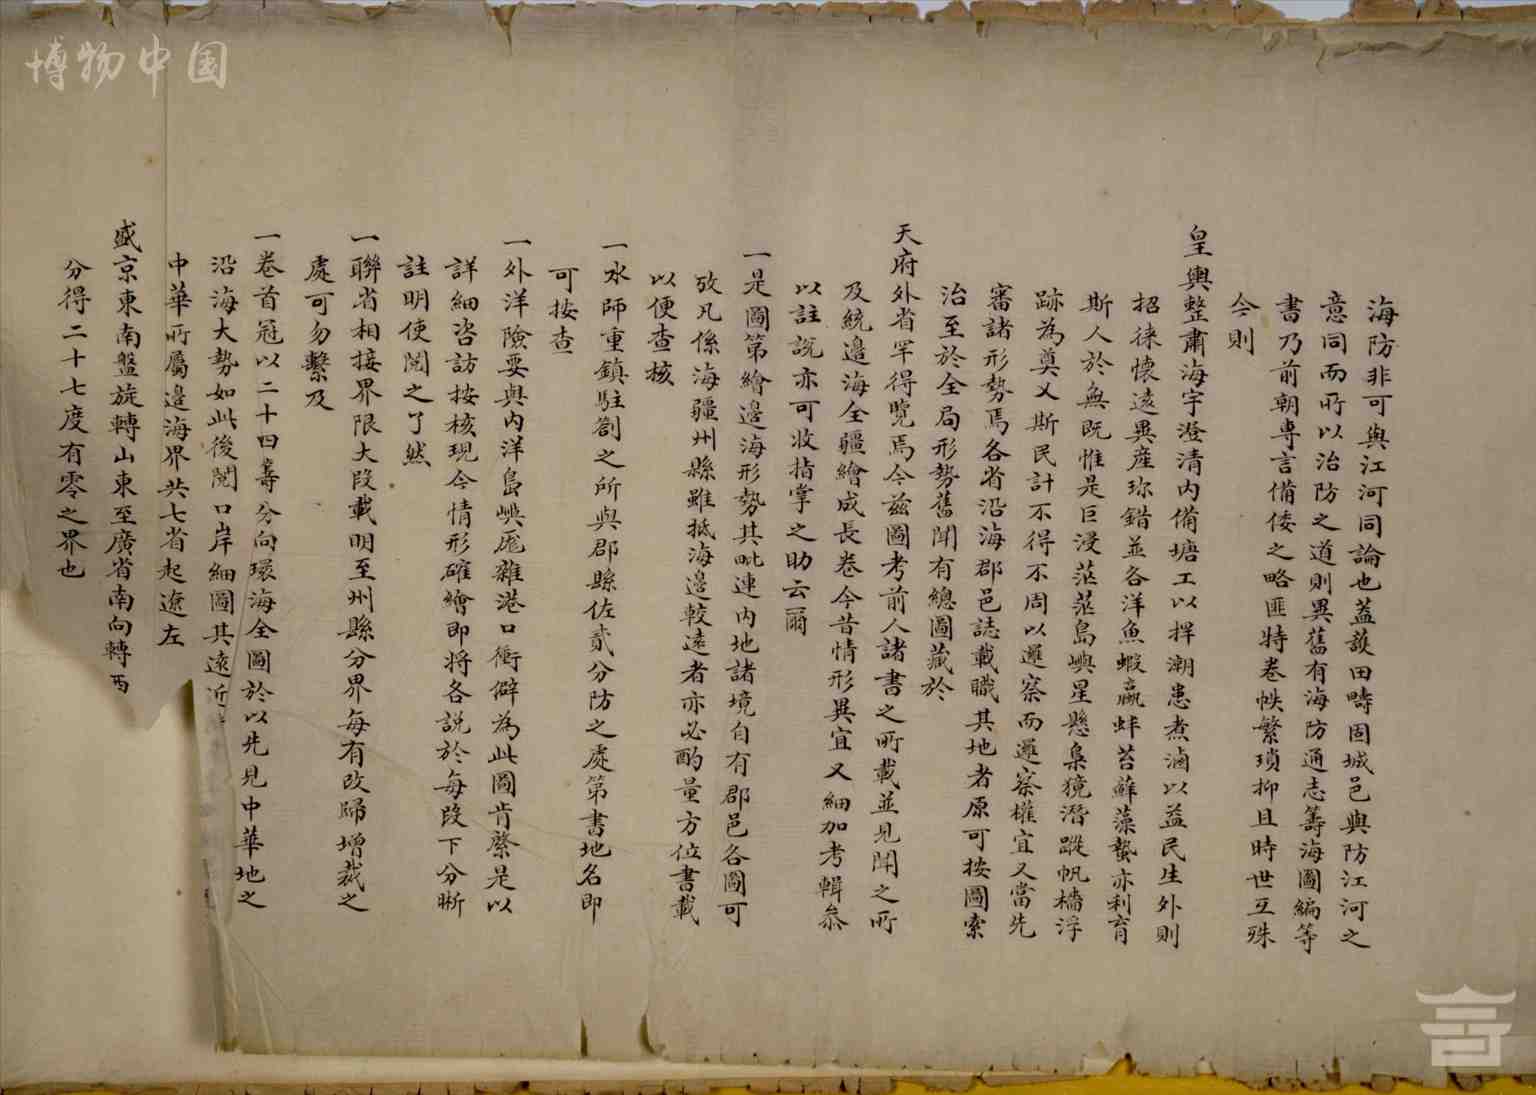 博物中国
海防非可與江河同論也蓋護田疇固城邑與防江河之
意同而所以治防之道則異舊有海防通志籌海圖編等
書乃前朝專言備倭之略匪特卷帙繁瑣抑且時世互殊
今則
皇輿整肅海宇澄清内備塘工以捍潮患煮滷以益民生外則
招徠懷遠異産珍錯並各洋魚蝦蠃蚌苔蘚藻蟄亦利育
斯人於無既惟是巨浸茫茫島嶼星懸梟獍潛蹤帆檣浮
跡為奠乂斯民計不得不周以邏察而邏察權宜又當先
審諸形勢焉各省沿海郡邑誌載職其地者原可按圖索
治至於全局形勢舊聞有總圖藏於
天府外省罕得覧焉今兹圖考前人諸書之所載並見聞之所
及統邉海全疆繪成長卷今昔情形異宜又細加考輯叅
以註説亦可收指掌之助云爾
一是圖第繪邉海形勢其毗連内地諸境自有郡邑各圖可
攷凡係海疆州縣雖抵海邉較遠者亦必酌量方位書載
以便查核
一水師重鎮駐劄之所與郡縣佐貳分防之處第書地名即
可按查
一外洋險要與内洋島嶼厐雜港口衝僻為此圖肯綮是以
詳細咨訪按核現今情形確繪即将各説於每段下分晰
註明使閲之了然
一聯省相接界限大段載明至州縣分界每有改歸增裁之
處可勿繫及
一卷首冠以二十四籌分向環海全圖於以先見中華地之
沿海大勢如此後閲口岸細圖其遠近
中華所屬邉海界共七省起遼左
盛京東南盤旋轉山東至廣省南向轉西
分得二十七度有零之界也